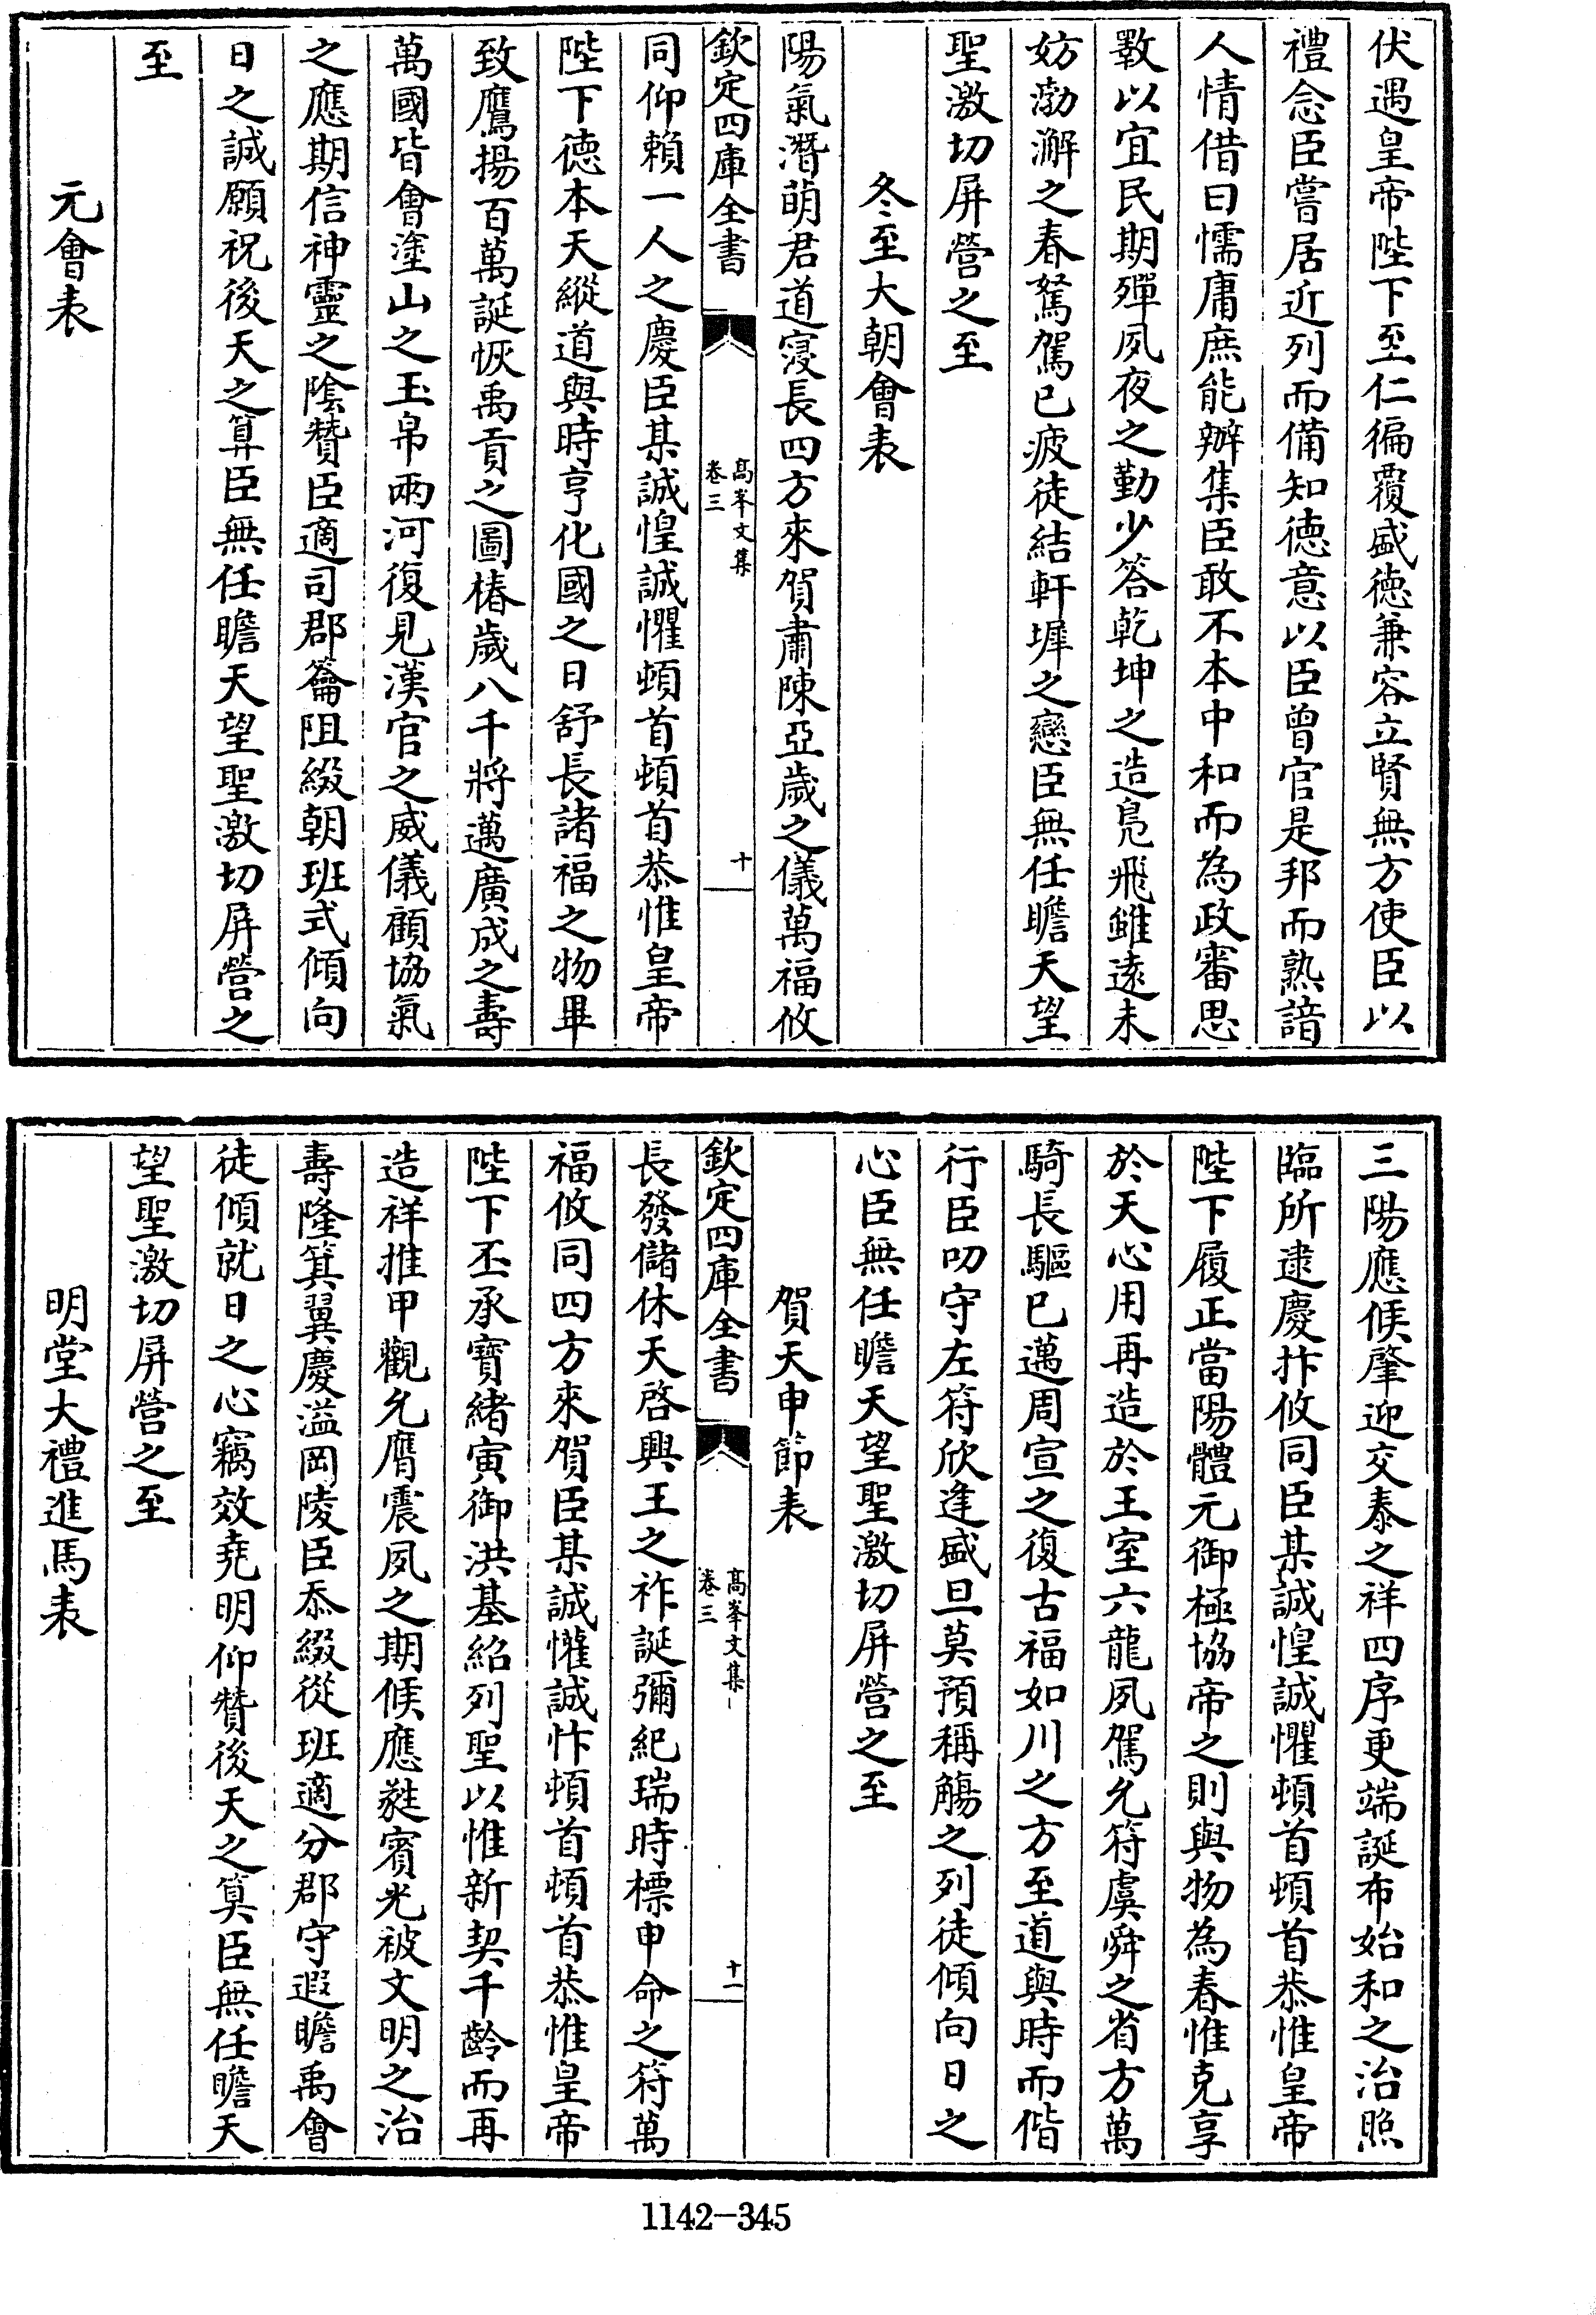 伏遇皇帝陛下至仁徧覆盛徳兼容立賢無方使臣以
禮念臣嘗居近列而備知徳意以臣曾官是邦而熟諳
人情借曰懦庸庶能辦集臣敢不本中和而為政審思
斁以宜民期殫夙夜之勤少答乾坤之造鳬飛雖逺未
妨渤澥之春駑駕已疲徒結軒墀之戀臣無任瞻天望
聖激切屏營之至
冬至大朝會表
陽氣潛萌君道寖長四方來賀肅陳亞歲之儀萬福攸
欽定四庫全書
高峯文集
卷三
十
同仰賴一人之慶臣某誠惶誠懼頓首頓首恭惟皇帝
陛下徳本天縱道與時亨化國之日舒長諸福之物畢
致鷹揚百萬誕恢禹貢之圖椿歲八千將邁廣成之壽
萬國皆會塗山之玉帛兩河復見漢官之威儀顧協氣
之應期信神靈之隂贊臣適司郡籥阻綴朝班式傾向
日之誠願祝後天之算臣無任瞻天望聖激切屏營之
至
元會表
三陽應候肇迎交泰之祥四序更端誕布始和之治照
臨所逮慶抃攸同臣某誠惶誠懼頓首頓首恭惟皇帝
陛下履正當陽體元御極協帝之則與物為春惟克享
於天心用再造於王室六龍夙駕允符虞舜之省方萬
騎長驅已邁周宣之復古福如川之方至道與時而偕
行臣叨守左符欣逢盛旦莫預稱觴之列徒傾向日之
心臣無任瞻天望聖激切屏營之至
賀天申節表
欽定四庫全書
高峯文集
卷三
十一
長發儲休天啓興王之祚誕彌紀瑞時標申命之符萬
福攸同四方來賀臣某誠懽誠忭頓首頓首恭惟皇帝
陛下丕承寶緒寅御洪基紹列聖以惟新契千齡而再
造祥推甲觀允膺震夙之期候應蕤賓光被文明之治
壽隆箕翼慶溢岡陵臣忝綴從班適分郡守遐瞻禹會
徒傾就日之心竊效堯明仰贊後天之算臣無任瞻天
望聖激切屏營之至
明堂大禮進馬表
1142-345